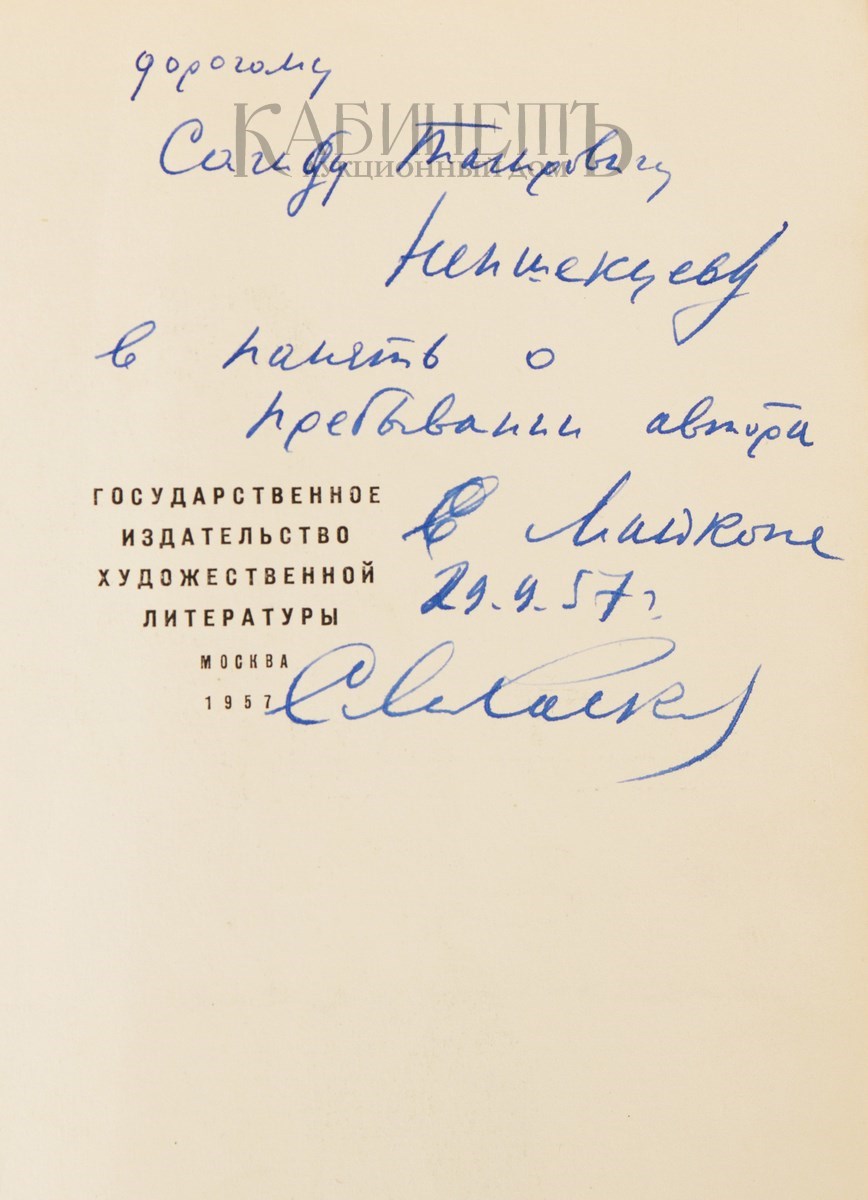 дорогому
КАБИНЕТЪ
АУКЦИОННЫЙ ДОМ
Саиду Таировичу
Непшекуеву
в память о
пребывании автора
в Майкопе
29.9.57 г.
ГОСУДАРСТВЕННОЕ
ИЗДАТЕЛЬСТВО
ХУДОЖЕСТВЕННОЙ
ЛИТЕРАТУРЫ
МОСКВА
1957